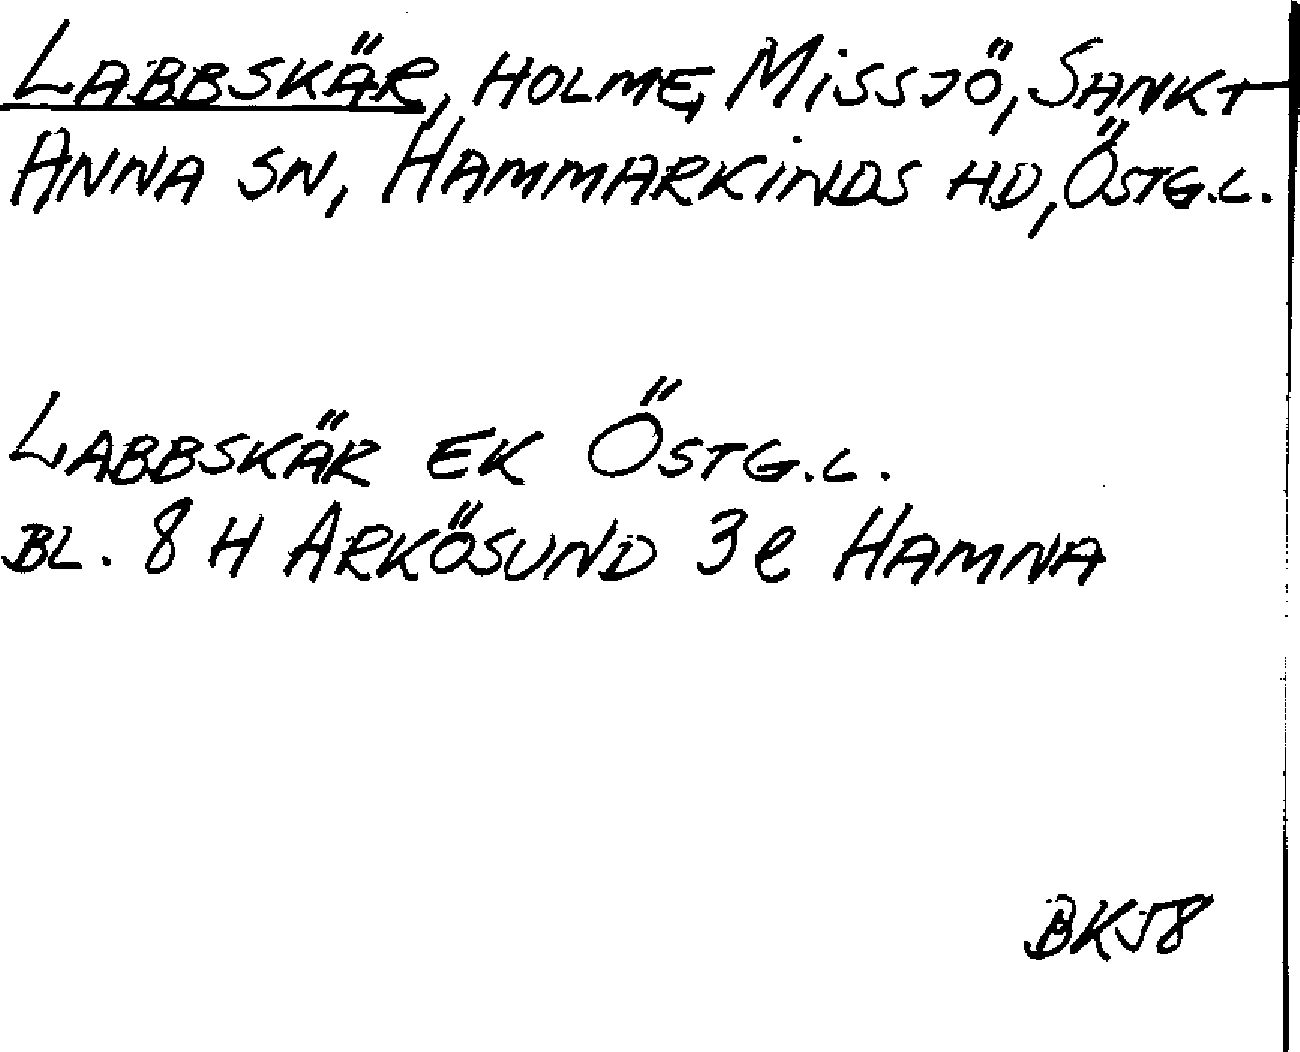 LABBSKÄR, HOLME, MISSJÖ, SANKT
ANNA SN, HAMMARKINDS HD, ÖSTG.L.
LABBSKÄR EK ÖSTG.L.
BL. 8 H ARKÖSUND 3 e HAMNA
BK58